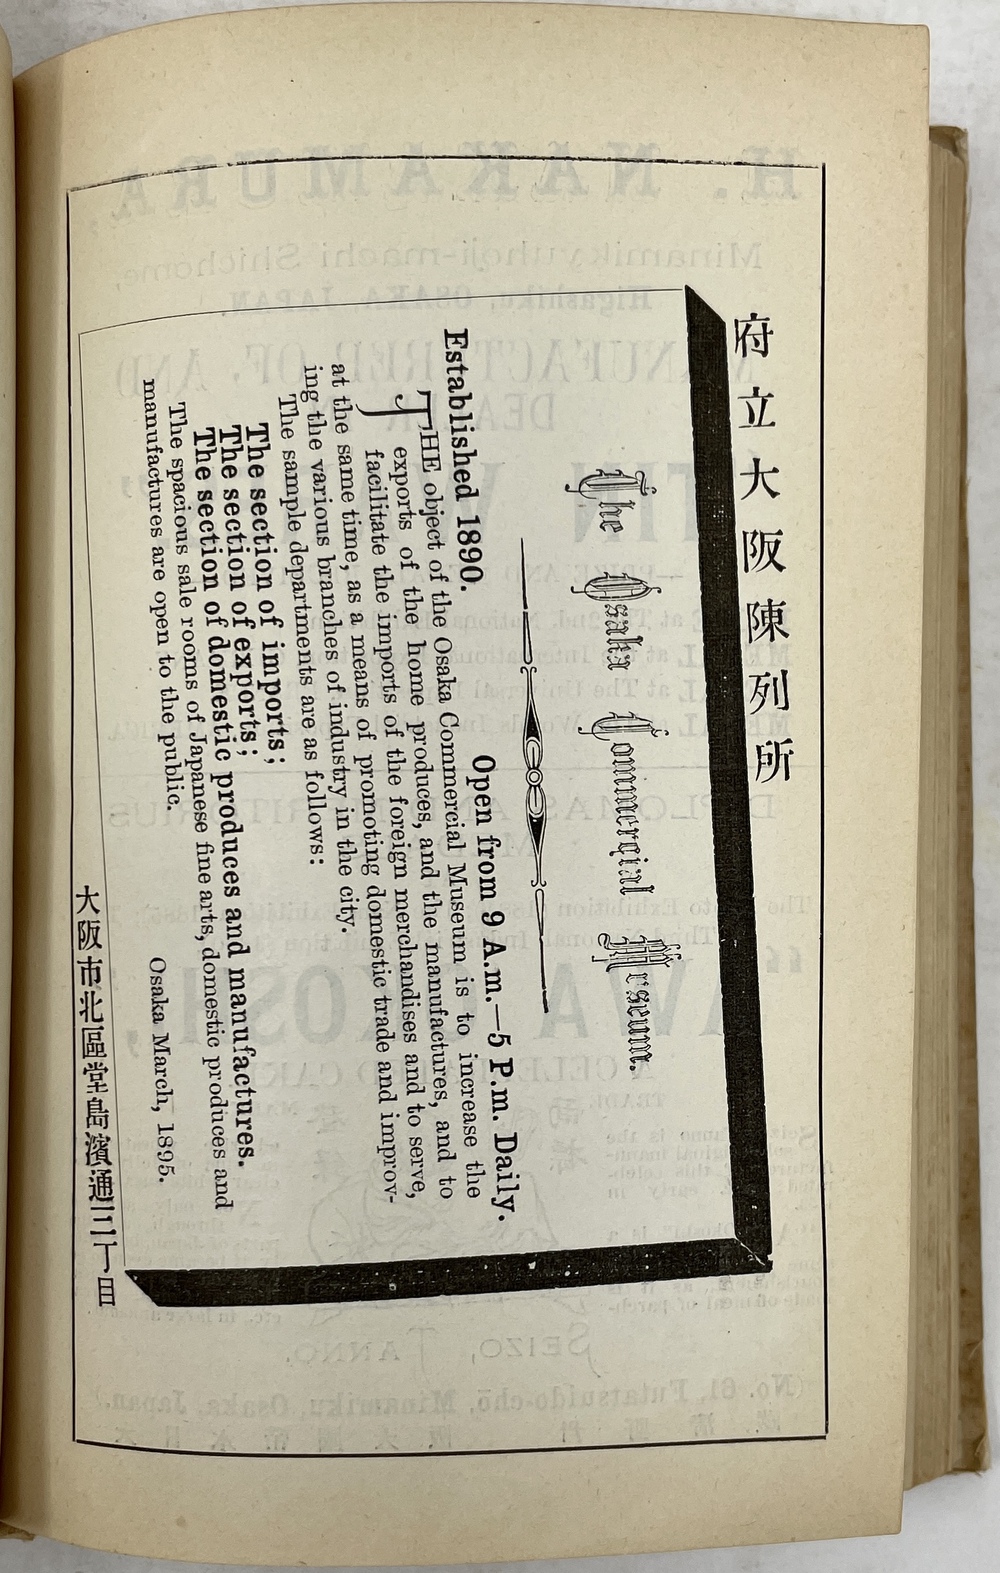 府立大阪陳列所
The Osaka Commercial Museum.
Established 1890.
Open from 9 A.m.—5 P.m. Daily.
THE object of the Osaka Commercial Museum is to increase the
exports of the home produces, and the manufactures, and to
facilitate the imports of the foreign merchandises and to serve,
at the same time, as a means of promoting domestic trade and improv-
ing the various branches of industry in the city.
The sample departments are as follows:
The section of imports;
The section of exports;
The section of domestic produces and manufactures.
The spacious sale rooms of Japanese fine arts, domestic produces and
manufactures are open to the public.
Osaka March, 1895.
大阪市北區堂島濱通二丁目